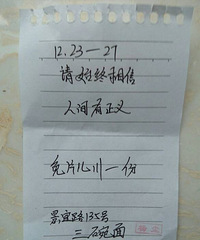 12.23—27
请始终相信
人间有正义
兔片儿川一份
景宜路135号
三碗面